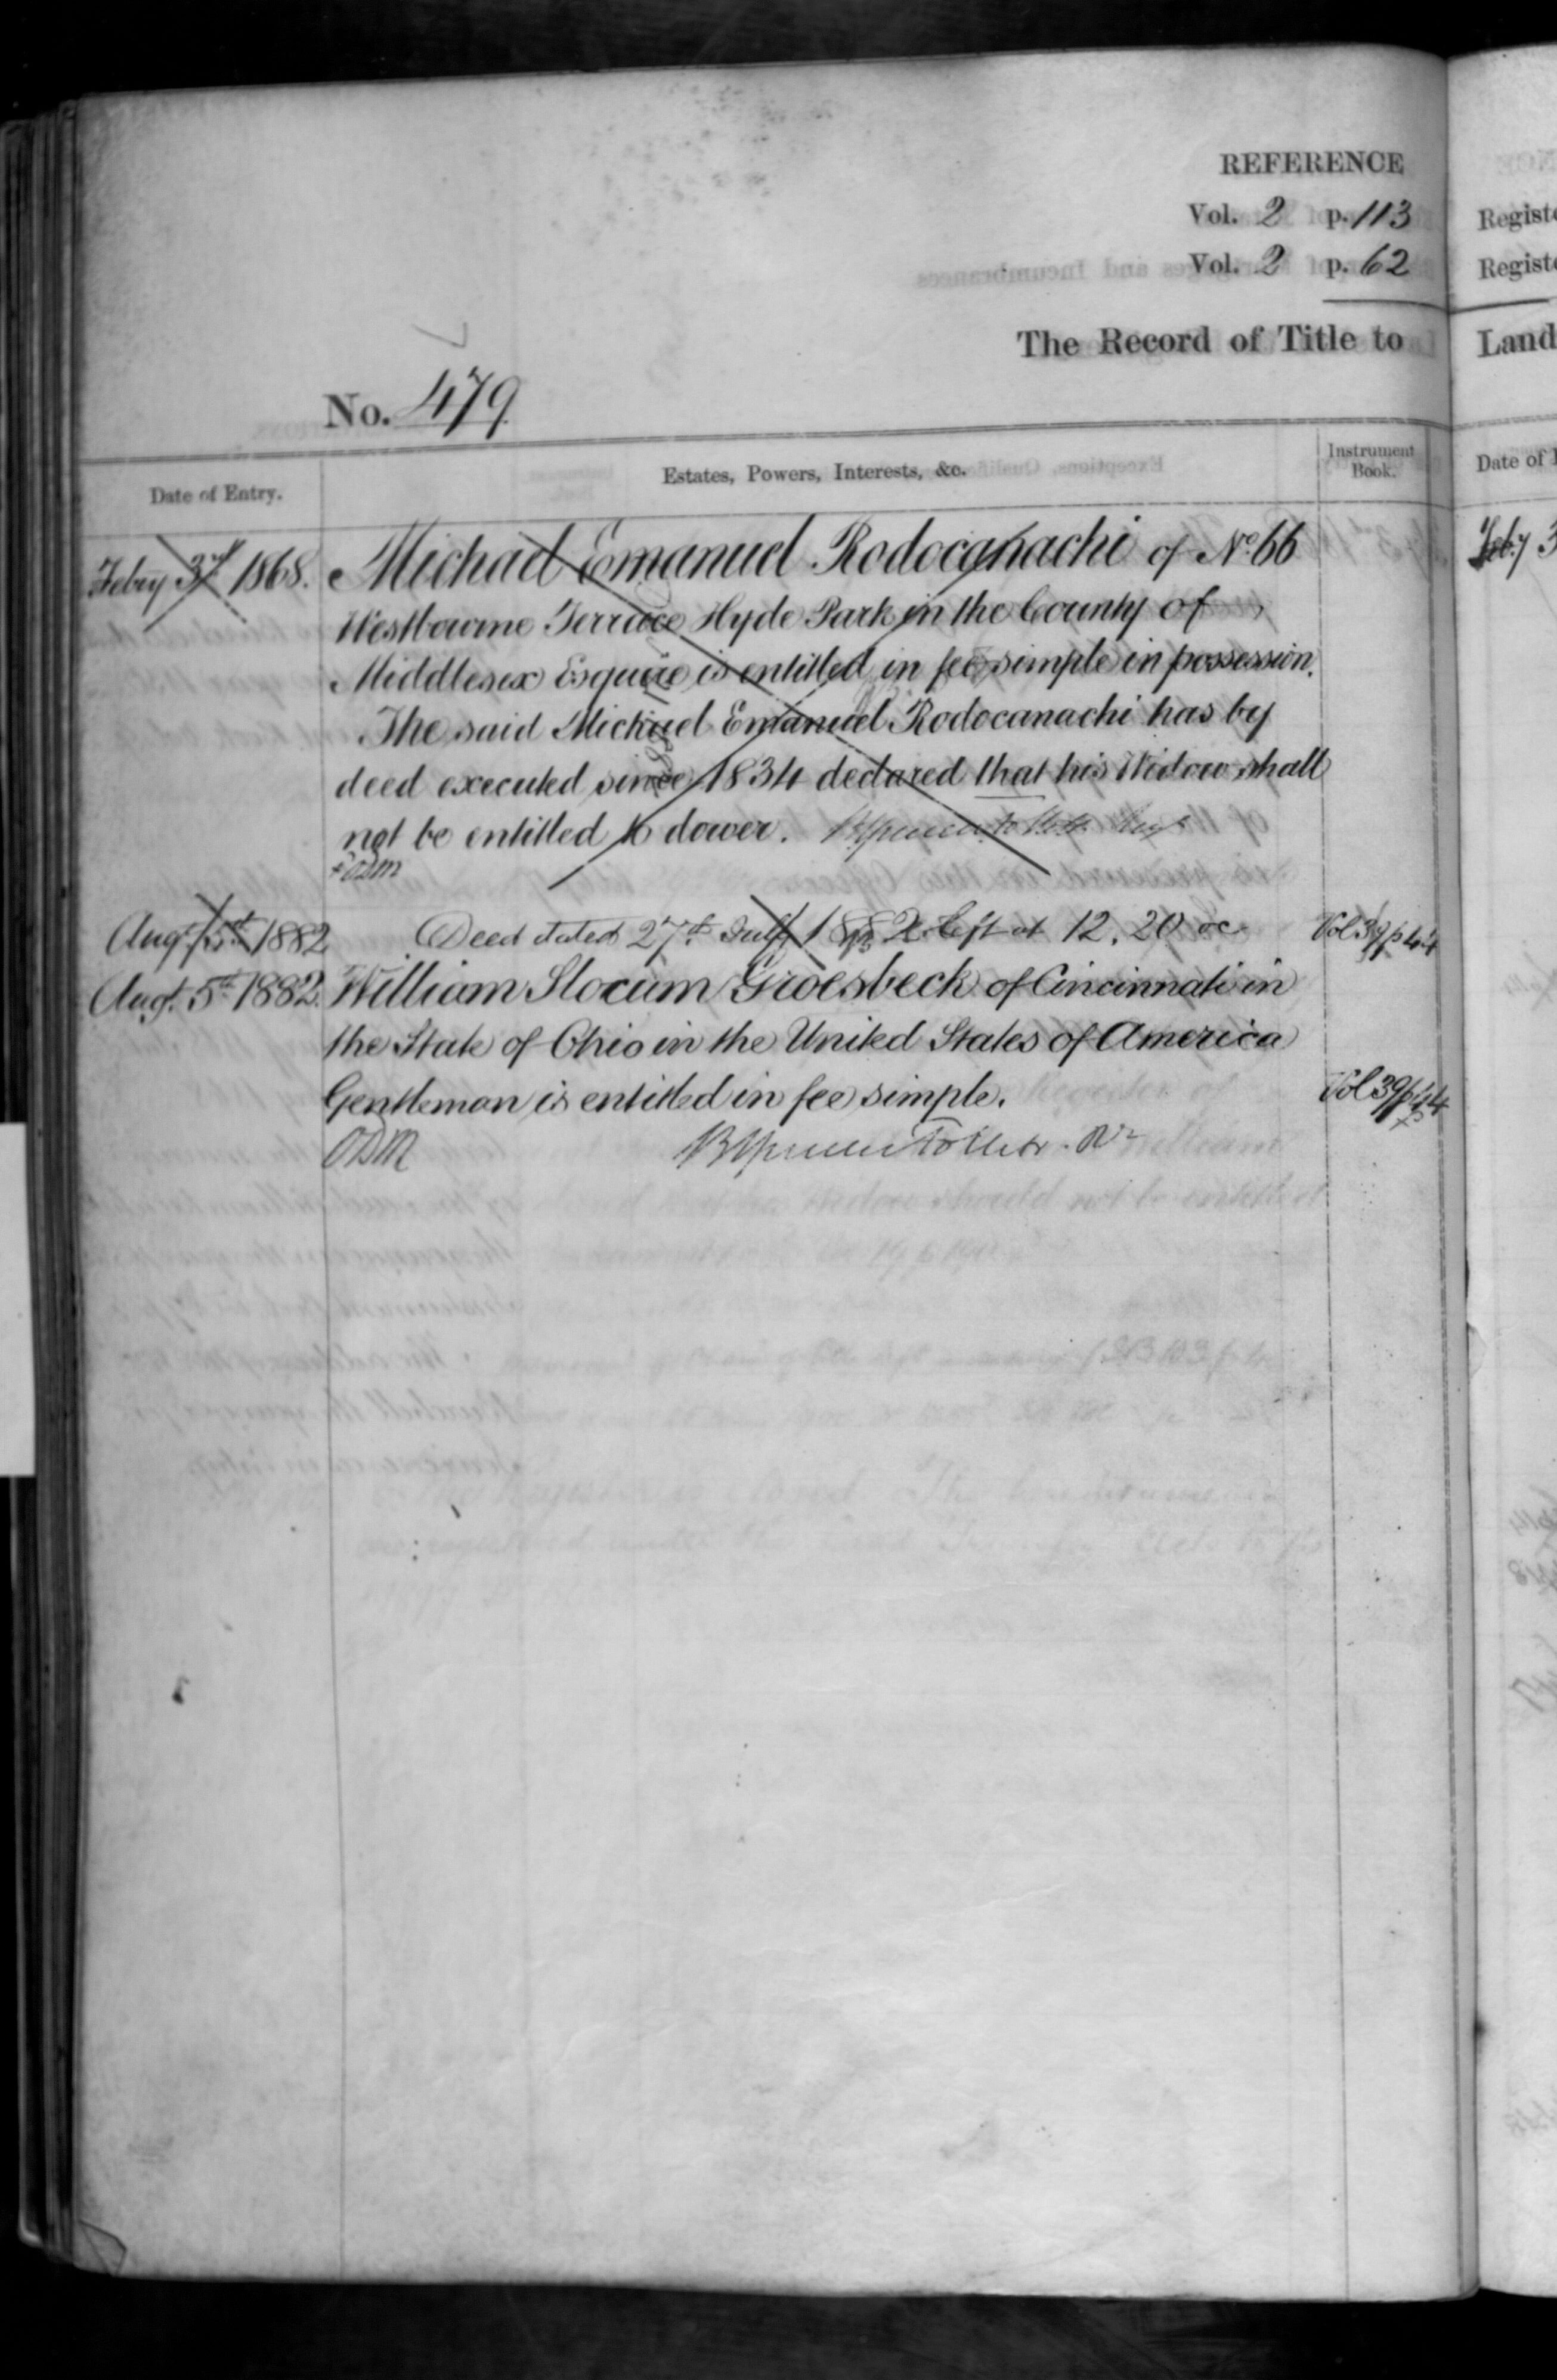 REFERENCE
Vol. 2 p. 113
Vol. 2 p. 62
The Record of Title to
No. 479
Date of Entry.
Estates, Powers, Interests, &c.
Instrument Book.
Feby 3rd 1868. Michael Emanuel Rodocanachi of No 66
Westbourne Terrace Hyde Park in the County of
Middlesex Esquire is entitled in fee simple in possession.
The said Michael Emanuel Rodocanachi has by
deed executed since 1834 declared that his Widow shall
not be entitled to dower.
ODM
Augt 5th 1882 Deed dated 27th July 1882 left at 12.20 oc Vol 39 p 44
Augt. 5th 1882. William Slocum Groesbeck of Cincinnati in
the State of Ohio in the United States of America
Gentleman is entitled in fee simple. Vol 39 p 44
ODM
Regist
Regist
Land
Date of
Feby 3